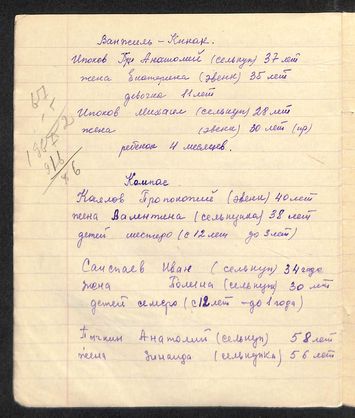 Ванжиль – Кынак.
Ипоков Анатолий (селькуп) 37 лет
жена Екатерина (эвенк) 35 лет
девочка 11 лет
Ипоков Михаил (селькуп) 28 лет
жена (эвенк) 30 лет
ребенок 4 месяцев.
Компас.
Каялов Прокопий (эвенк) 40 лет
жена Валентина (селькупка) 38 лет
детей шестеро (с 12 лет до 3 лет)
Саиспаев Иван (селькуп) 34 года
жена Полина (селькуп) 30 лет
детей семеро (с 12 лет – до 1 года)
Пычкин Анатолий (селькуп) 58 лет
жена Зинаида (селькупка) 56 лет